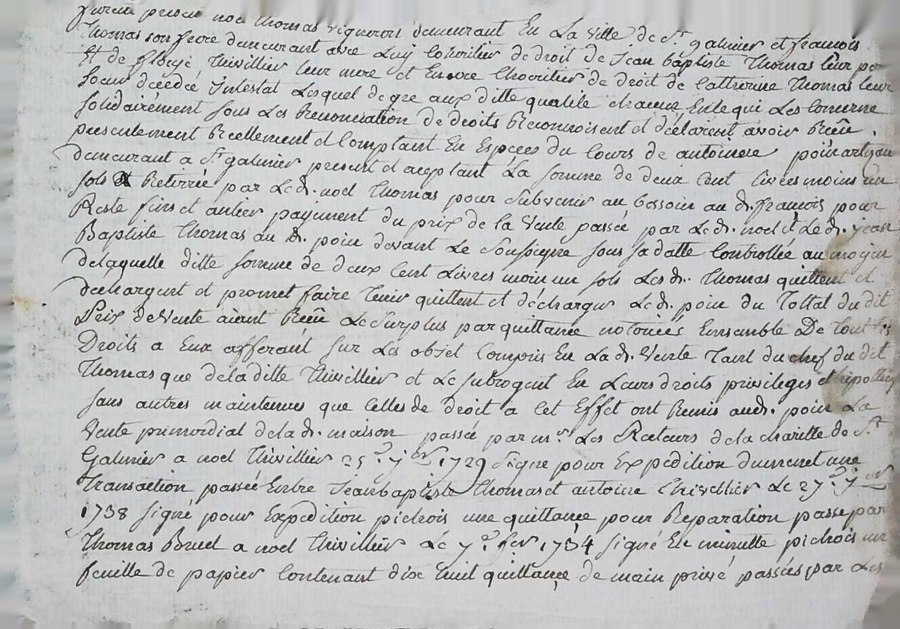 furent presen noel Thomas vigneron demeurant En La ville de St galmier et francois
Thomas son frere demeurant avec Luy heoritier de droit de Jean baptiste Thomas leur per
Et de fleurye Thivillier leur mere et Encore heoritier de droit de Catherine Thomas leur
Soeur decedée Intestat Lesquel de gre aux ditte qualité chacun En le qui Les Concerne
Solidairement sous Les Renonciation de droits Reconnoisent et déclarent avoir Reçu
presentement Reellement et Comptant En Especes du Cours de antoine poin artisan
demeurant a St galmier present et aceptant La somme de deux Cent Livres moins un
sols Retirrée par Le d. noel Thomas pour Subvenir au bessoin au d. francois pour
Reste fins et antier payement du prix de la Vente passée par Le d. noel et Le d. jean
Baptiste Thomas au d. poin devant Le Soussigne sous sa datte Controllée au moyen
de laquelle ditte somme de deux Cent Livres moin un sols Les d. Thomas quittent et
dechargent et promet faire Tenir quittent et décharger Le d. poin du Tottal du dit
Prix de Vente aiant Reçu Le surplus par quittance notoriés Ensemble De Tout
Droits a Eux afferant sur Les objet Compris En La d. Vente Tant du chef du dit
Thomas que de la ditte Thivillier et Le subrogent En Leurs droits privileges et
sans autres maintenues que Celles de Droit a Cet Effet ont Remis au d. poin La
Vente primordial de la d. maison passée par mrs Les Recteurs de la charitte de St
Galmier a noel Thivillier 25 1729 signé pour Expedition une
Transaction passée Entre Jean baptiste Thomas et antoine Thivillier Le 27
1738 signé pour Expedition pichois une quittance pour Reparation passé par
Thomas Bruel a noel Thivillier Le 7 1734 signé En minutte pichois un
feuille de papier Contenant dix huit quittance de main privé passées par Les